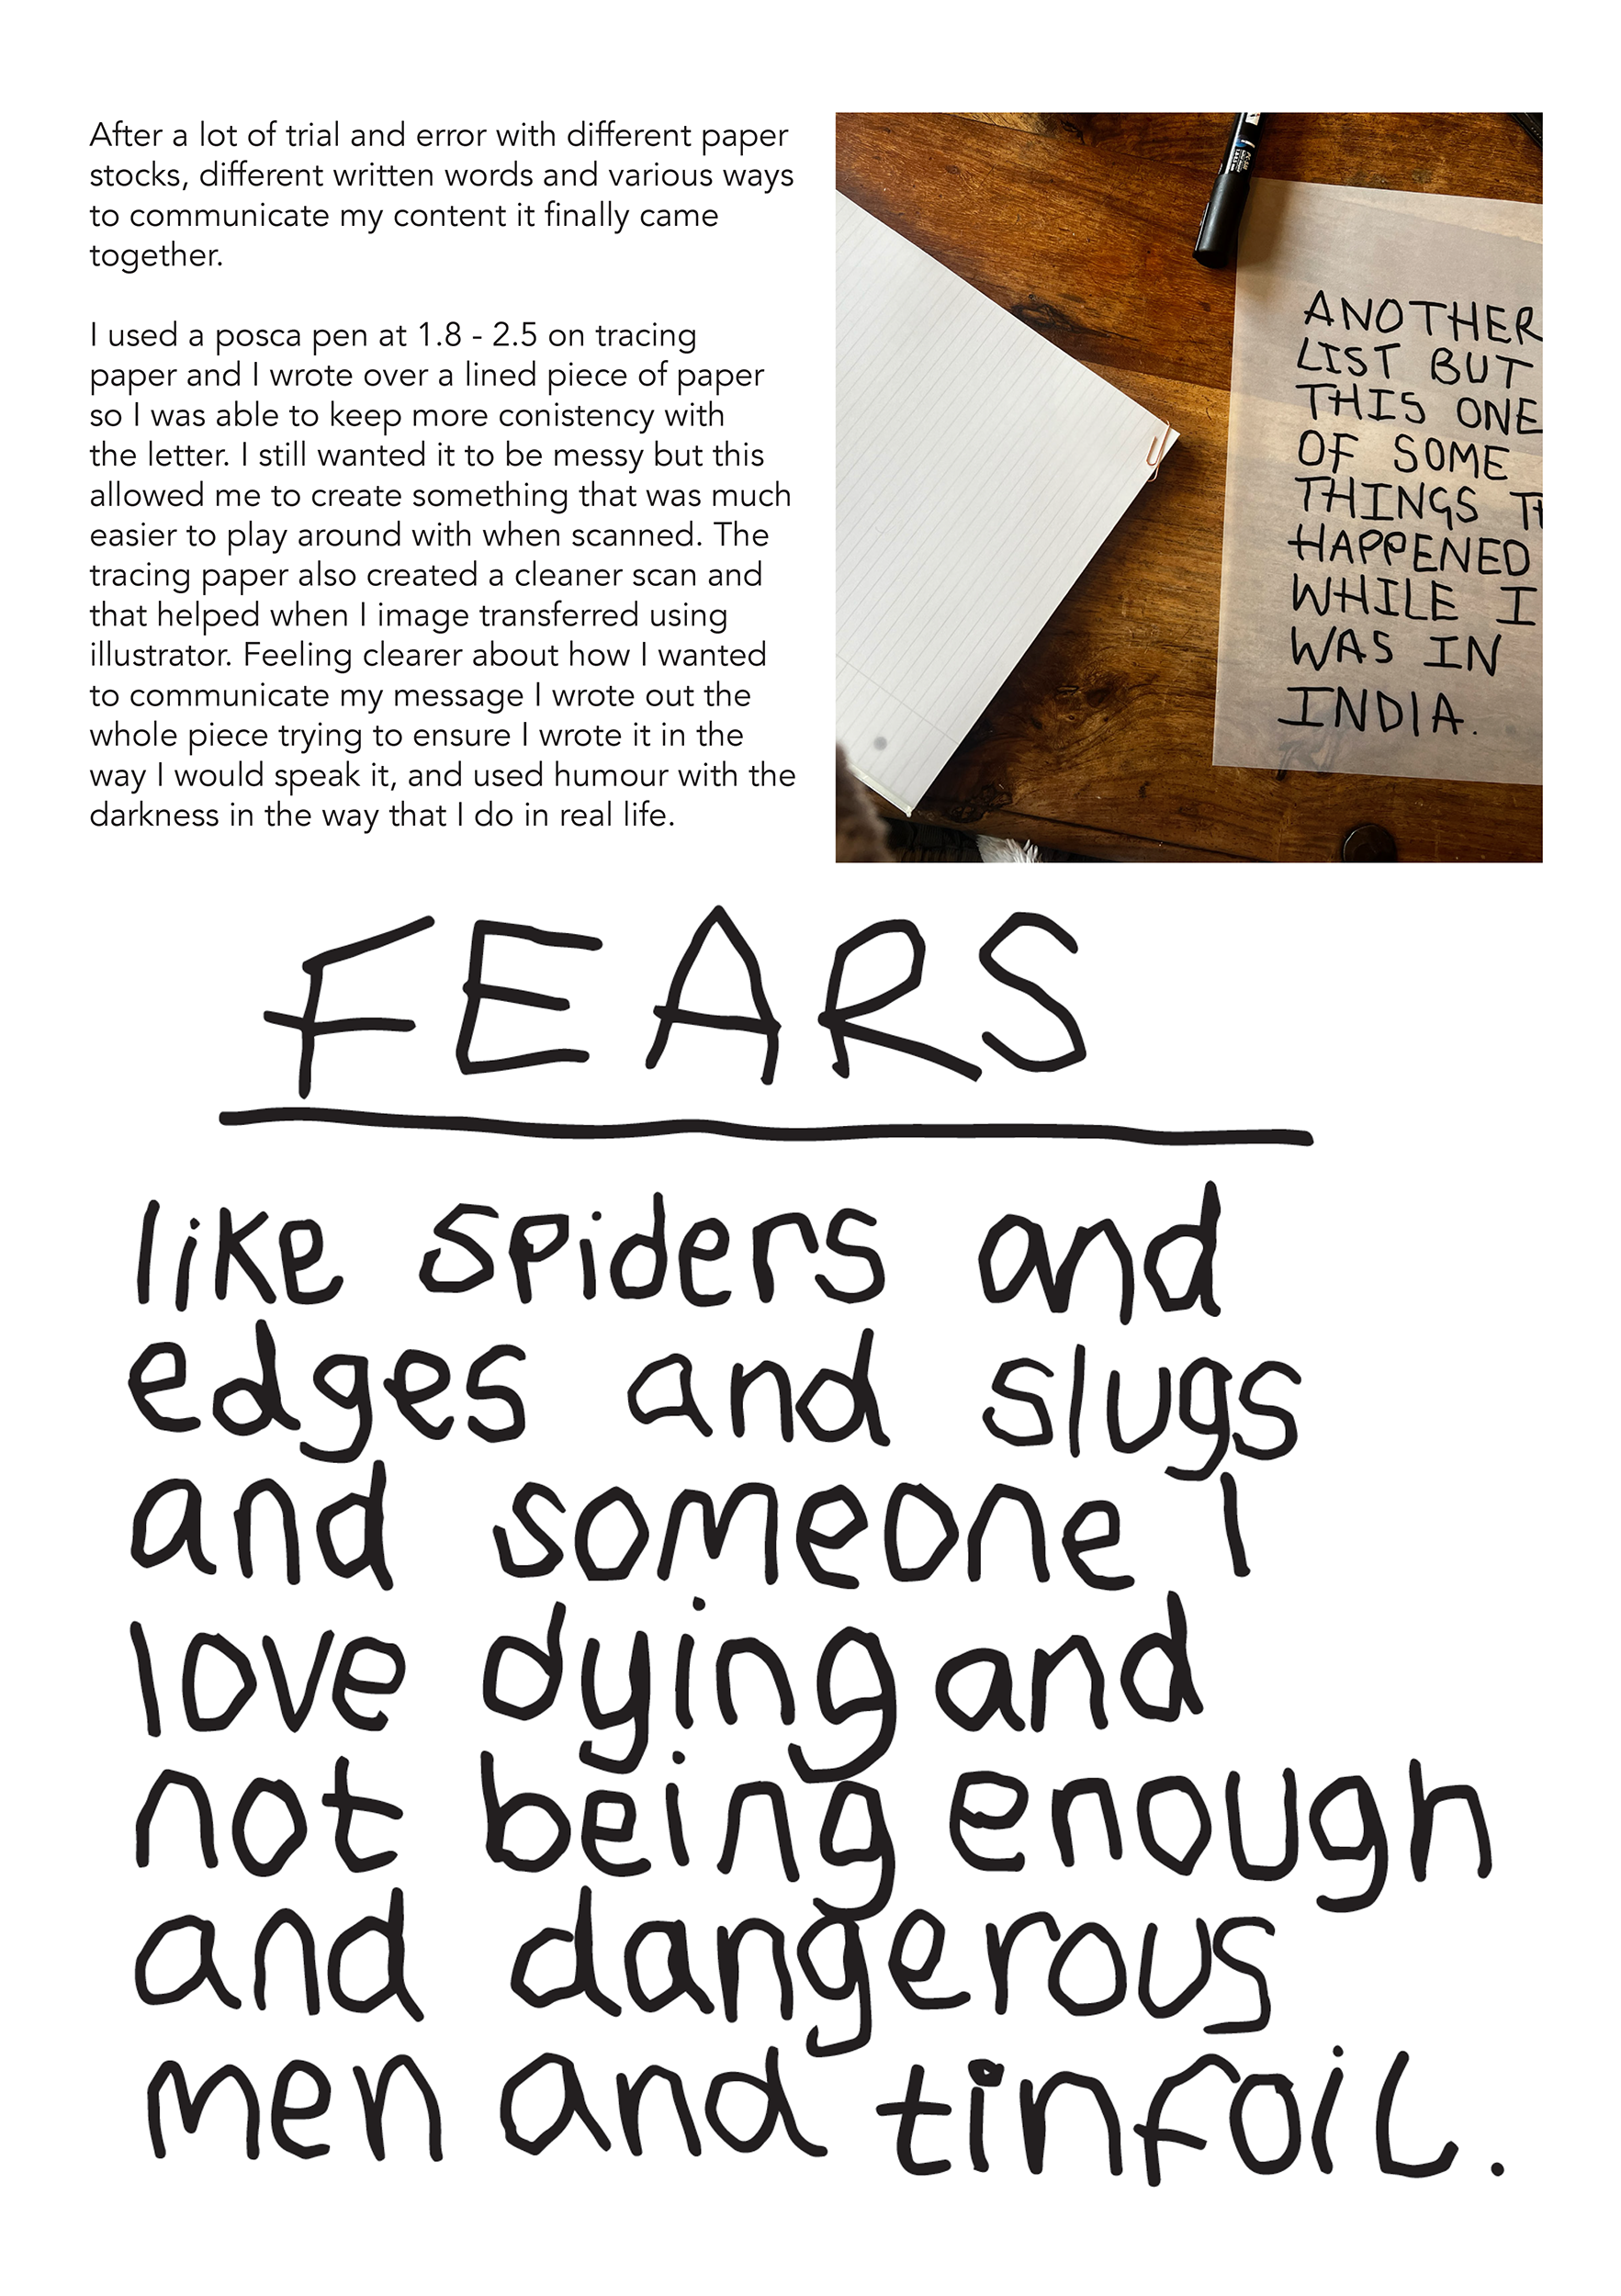 After a lot of trial and error with different paper
stocks, different written words and various ways
to communicate my content it finally came
together.
I used a posca pen at 1.8 - 2.5 on tracing
paper and I wrote over a lined piece of paper
so I was able to keep more conistency with
the letter. I still wanted it to be messy but this
allowed me to create something that was much
easier to play around with when scanned. The
tracing paper also created a cleaner scan and
that helped when I image transferred using
illustrator. Feeling clearer about how I wanted
to communicate my message I wrote out the
whole piece trying to ensure I wrote it in the
way I would speak it, and used humour with the
darkness in the way that I do in real life.
ANOTHER
LIST BUT
THIS ONE
OF SOME
THINGS
HAPPENED
WHILE I
WAS IN
INDIA.
FEARS
like spiders and
edges and slugs
and someone I
love dying and
not being enough
and dangerous
men and tinfoil.